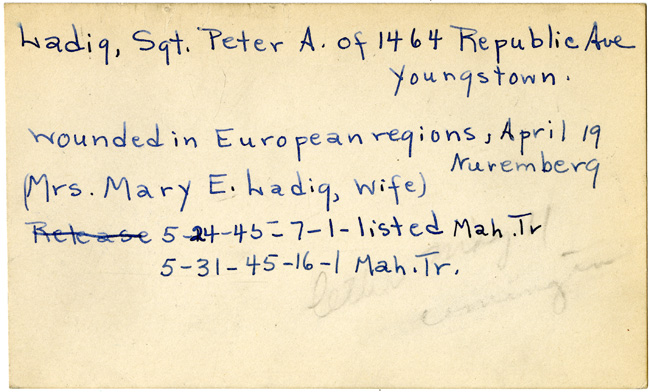 Ladig, Sgt. Peter A. of 1464 Republic Ave
Youngstown.
wounded in European regions, April 19
Nuremberg
(Mrs. Mary E. Ladig, wife)
Release 5-24-45-7-1-listed Mah.Tr
5-31-45-16-1 Mah.Tr.
coming in